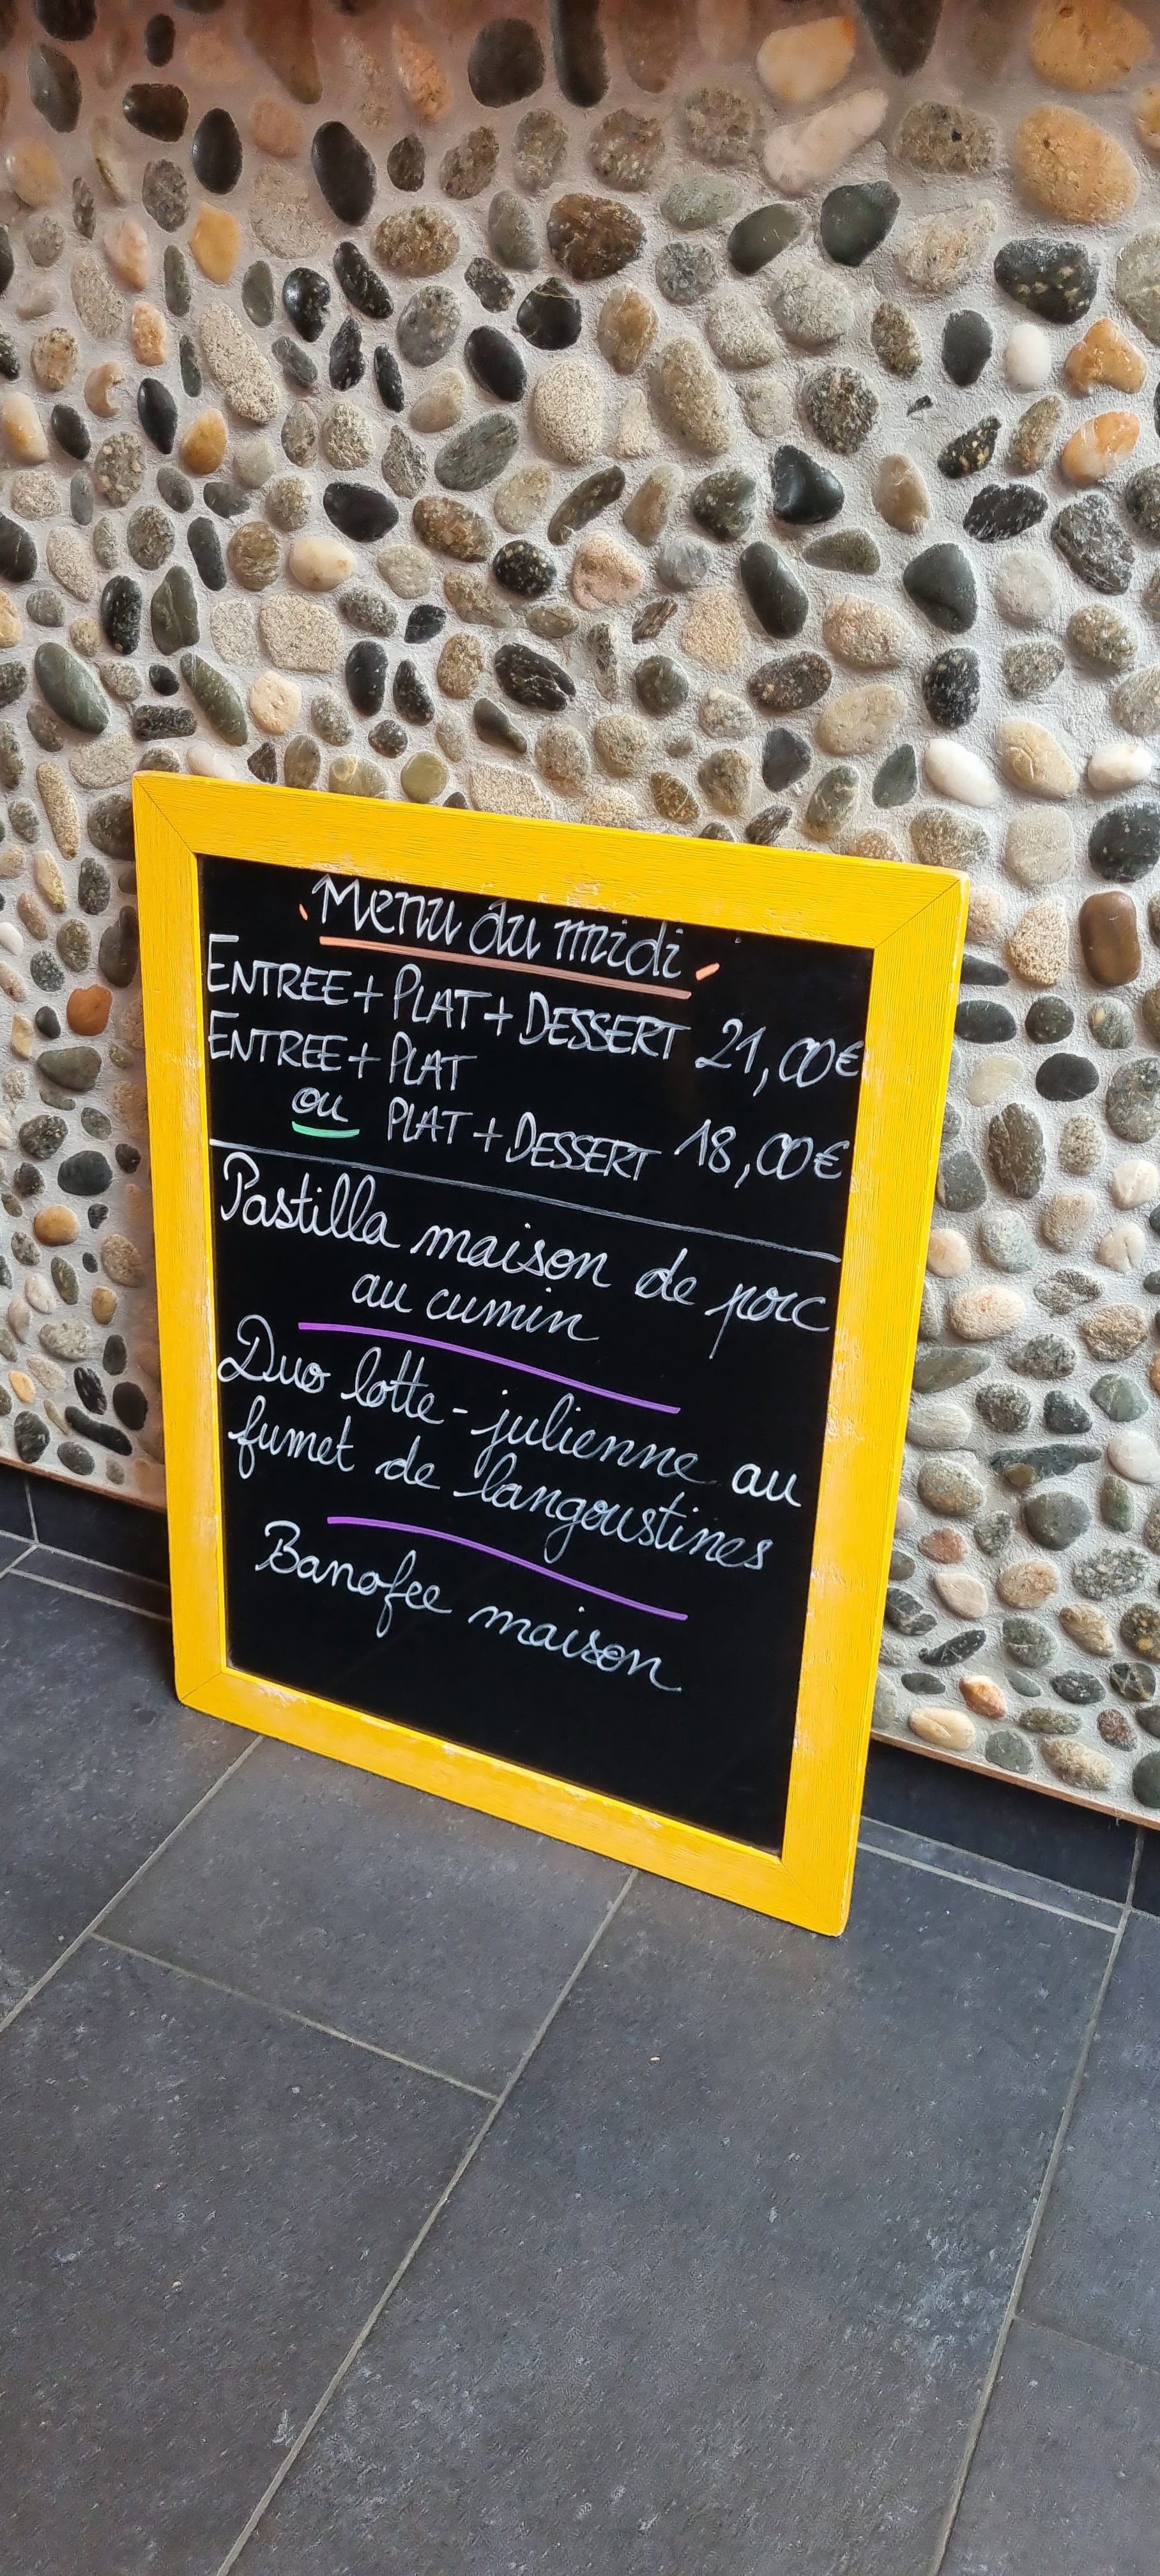 Menu du midi
ENTREE + PLAT + DESSERT 21,00€
ENTREE + PLAT
ou PLAT + DESSERT 18,00€
Pastilla maison de porc
au cumin
Duo lotte - julienne au
fumet de langoustines
Banofee maison